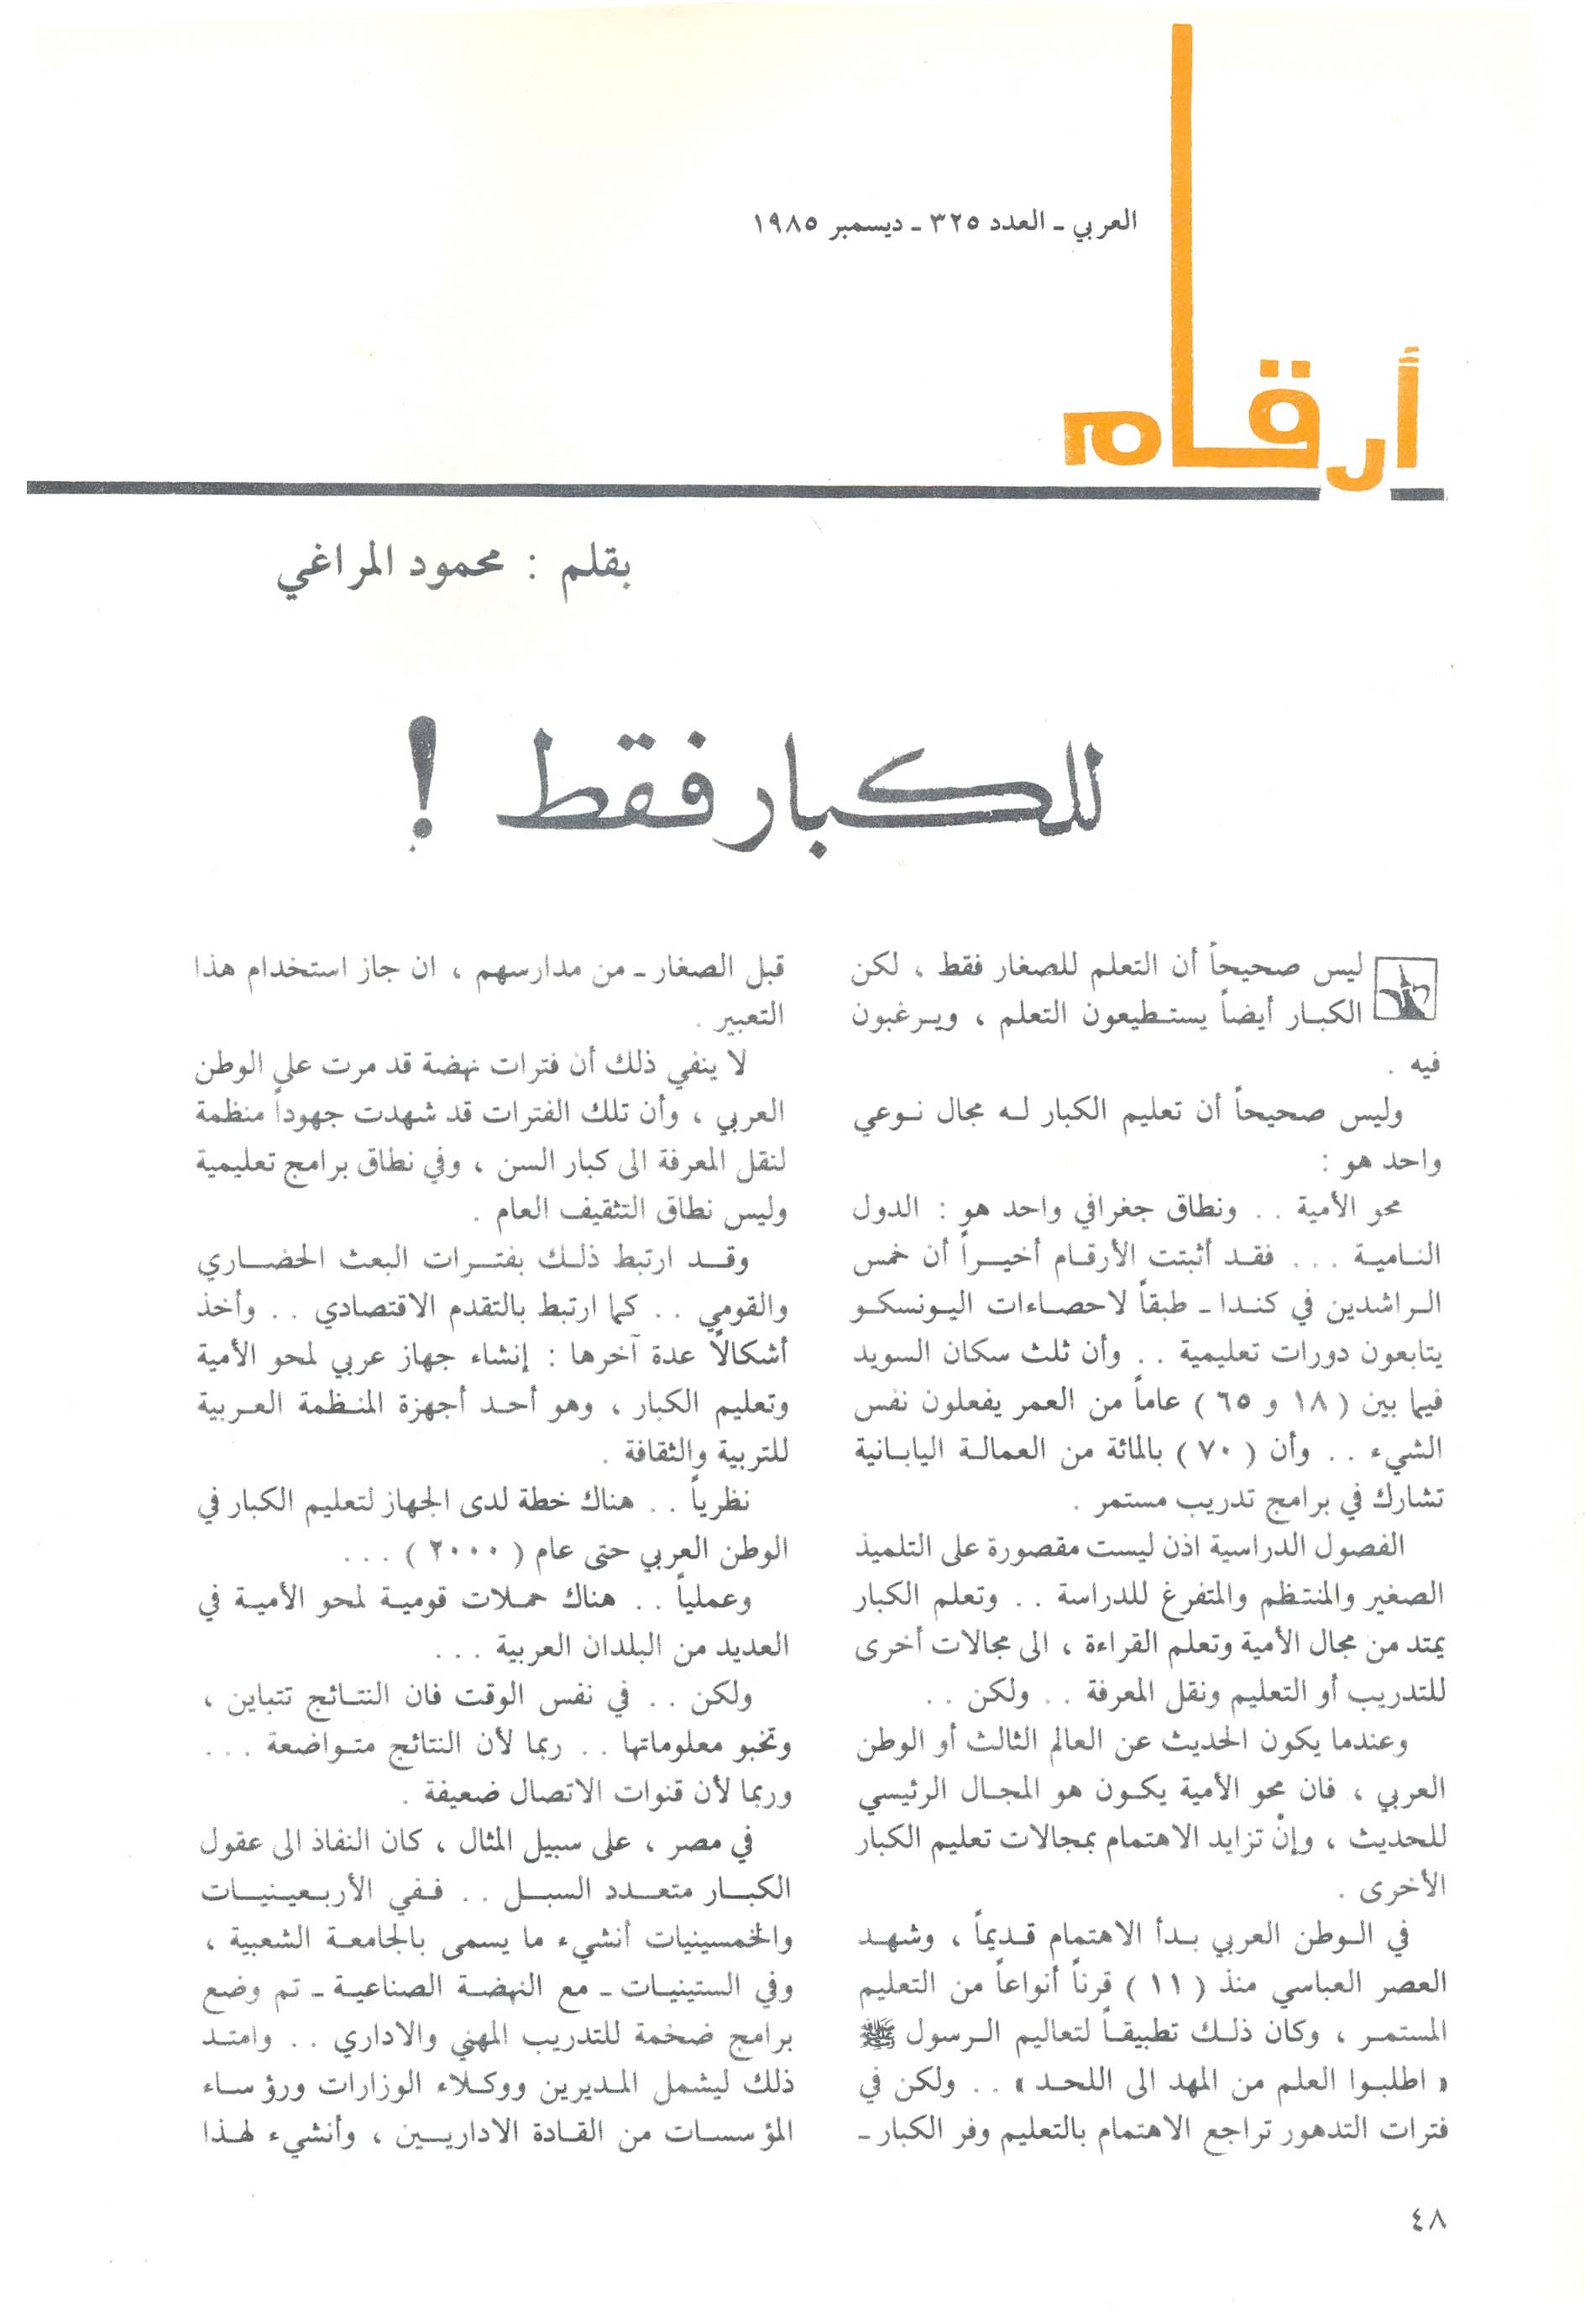 العربي - العدد ٣٢٥ - ديسمبر ١٩٨٥
أرقام
بقلم : محمود المراغي
للكبار فقط !
ليس صحيحاً أن التعلم للصغار فقط ، لكن
الكبار أيضاً يستطيعون التعلم ، ويرغبون
فيه .
وليس صحيحاً أن تعليم الكبار له مجال نوعي
واحد هو :
محو الأمية . . ونطاق جغرافي واحد هو : الدول
النامية . . . فقد أثبتت الأرقام أخيراً أن خمس
الراشدين في كندا - طبقاً لاحصاءات اليونسكو
يتابعون دورات تعليمية . . وأن ثلث سكان السويد
فيما بين ( ١٨ و ٦٥ ) عاماً من العمر يفعلون نفس
الشيء . . وأن ( ٧٠ ) بالمائة من العمالة اليابانية
تشارك في برامج تدريب مستمر .
الفصول الدراسية اذن ليست مقصورة على التلميذ
الصغير والمنتظم والمتفرغ للدراسة . . وتعلم الكبار
يمتد من مجال الأمية وتعلم القراءة ، الى مجالات أخرى
للتدريب أو التعليم ونقل المعرفة . . ولكن . .
وعندما يكون الحديث عن العالم الثالث أو الوطن
العربي ، فان محو الأمية يكون هو المجال الرئيسي
للحديث ، وإنْ تزايد الاهتمام بمجالات تعليم الكبار
الأخرى .
في الوطن العربي بدأ الاهتمام قديماً ، وشهد
العصر العباسي منذ ( ١١ ) قرناً أنواعاً من التعليم
المستمر ، وكان ذلك تطبيقاً لتعاليم الرسول ﷺ
« اطلبوا العلم من المهد الى اللحد » . . ولكن في
فترات التدهور تراجع الاهتمام بالتعليم وفر الكبار -
قبل الصغار - من مدارسهم ، ان جاز استخدام هذا
التعبير .
لا ينفي ذلك أن فترات نهضة قد مرت على الوطن
العربي ، وأن تلك الفترات قد شهدت جهوداً منظمة
لنقل المعرفة الى كبار السن ، وفي نطاق برامج تعليمية
وليس نطاق التثقيف العام .
وقد ارتبط ذلك بفترات البعث الحضاري
والقومي . . كما ارتبط بالتقدم الاقتصادي . . وأخذ
أشكالاً عدة آخرها : إنشاء جهاز عربي لمحو الأمية
وتعليم الكبار ، وهو أحد أجهزة المنظمة العربية
للتربية والثقافة .
نظرياً . . هناك خطة لدى الجهاز لتعليم الكبار في
الوطن العربي حتى عام ( ٢٠٠٠ ) . . .
وعملياً . . هناك حملات قومية لمحو الأمية في
العديد من البلدان العربية . . .
ولكن . . في نفس الوقت فان النتائج تتباين ،
وتخبو معلوماتها . . ربما لأن النتائج متواضعة . . .
وربما لأن قنوات الاتصال ضعيفة .
في مصر ، على سبيل المثال ، كان النفاذ الى عقول
الكبار متعدد السبل . . ففي الأربعينيات
والخمسينيات أنشيء ما يسمى بالجامعة الشعبية ،
وفي الستينيات - مع النهضة الصناعية - تم وضع
برامج ضخمة للتدريب المهني والاداري . . وامتد
ذلك ليشمل المديرين ووكلاء الوزارات ورؤساء
المؤسسات من القادة الاداريين ، وأنشيء لهذا
٤٨